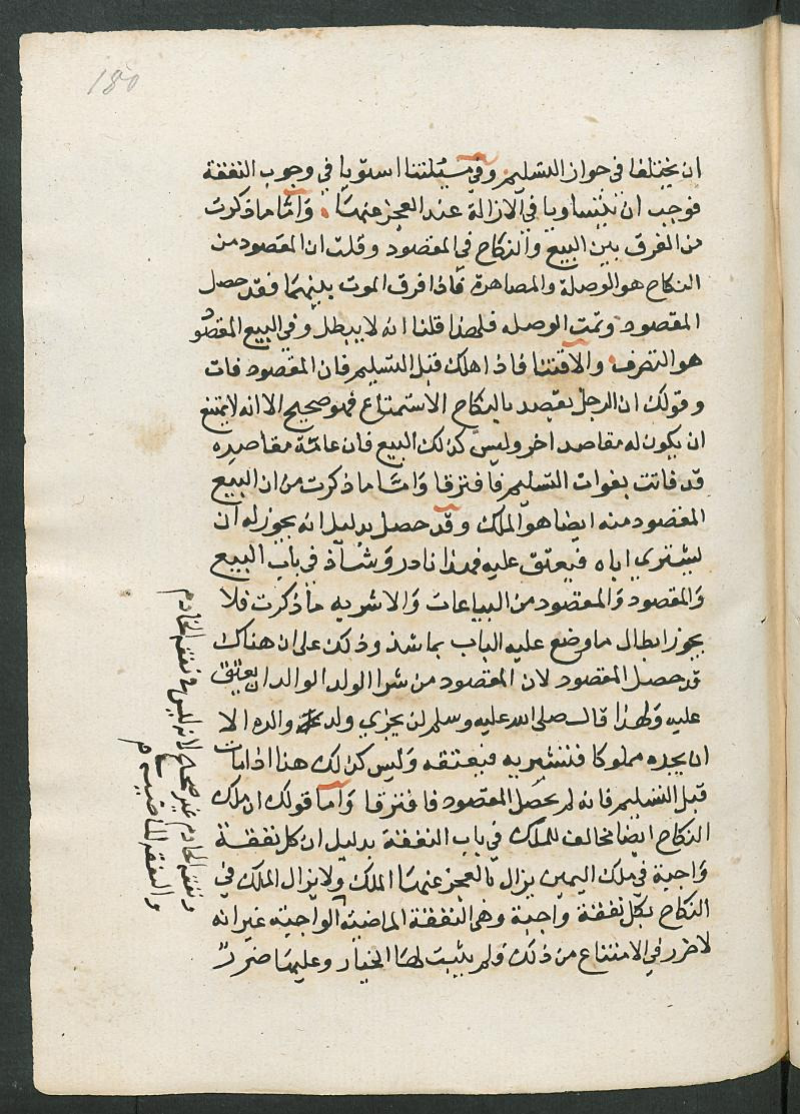 180
ان يختلفا في جواز التسليم وفي مسئلتنا استويا في وجوب النفقة
فوجب ان يتساويا في الازالة عند العجز عنها واما ما ذكرت
من الفرق بين البيع والنكاح في المقصود وقلت ان المقصود من
النكاح هو الوصلة والمصاهرة فاذا فرق الموت بينهما فقد حصل
المقصود وتمت الوصله فلهذا قلنا انه لا يبطل وفي البيع المقصود
هو التصرف والاقتنا فاذا هلك قبل التسليم فان المقصود فات
وقولك ان الرجل يقصد بالنكاح الاستمتاع فهو صحيح الا انه لا يمتنع
ان يكون له مقاصد اخر وليس كذلك البيع فان عامة مقاصده
قد فاتت بفوات التسليم فافترقا واما ما ذكرت من ان البيع
المقصود منه ايضا هو الملك وقد حصل بدليل انه يجوز له ان
يشتري اباه فيعتق عليه فهذا نادر وشاذ في باب البيع
والمقصود والمقصود من البياعات والاشريه ما ذكرت فلا
يجوز ابطال ما وضع عليه الباب بما شذ وذلك على ان هناك
قد حصل المقصود لان المقصود من شرا الولد الوالد ان يعتق
عليه ولهذا قال صلى الله عليه وسلم لن يجزي ولد والده الا
ان يجده مملوكا فيشتريه فيعتقه وليس كذلك هنا اذا مات
قبل التسليم فانه لم يحصل المقصود فافترقا واما قولك ان ملك
النكاح ايضا مخالف للملك في باب النفقة بدليل ان كل نفقة
واجبة في ملك اليمين يزال بالعجز عنها الملك ولا يزال الملك في
النكاح بكل نفقة واجبة وهي النفقة الماضية الواجبة غير انه
لا ضرر في الامتناع من ذلك ولم يثبت لها الخيار وعليها ضرر
ونفقة الخادم غير صحيح لانه ليس في نفقة الخادم
والنفقة الماضية